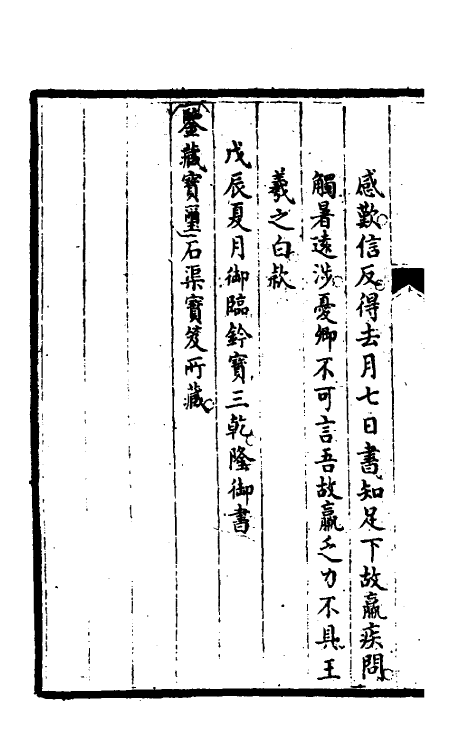 感歎信反得去月七日書知足下故羸疾問
觸暑遠涉憂卿不可言吾故羸乏力不具王
羲之白款
戊辰夏月御臨鈐寳三乾隆御書
鑒藏寳璽石渠寳笈所藏